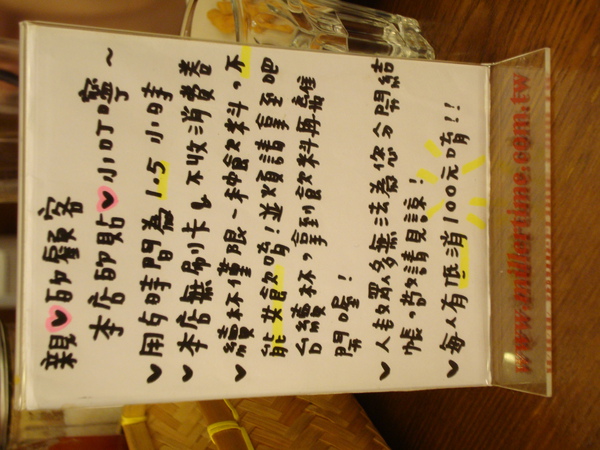 親♥的顧客
本店的貼♥小叮嚀~
♥用餐時間為1.5小時
♥本店無刷卡、不收消費卷
♥續杯僅限一種飲料，不
能共飲唷!並煩請拿至吧
台續杯，拿到飲料再離
開喔!
♥人若眾多無法為您分開結
帳，敬請見諒!
♥每人有低消100元唷!!
www.millortime.com.tw